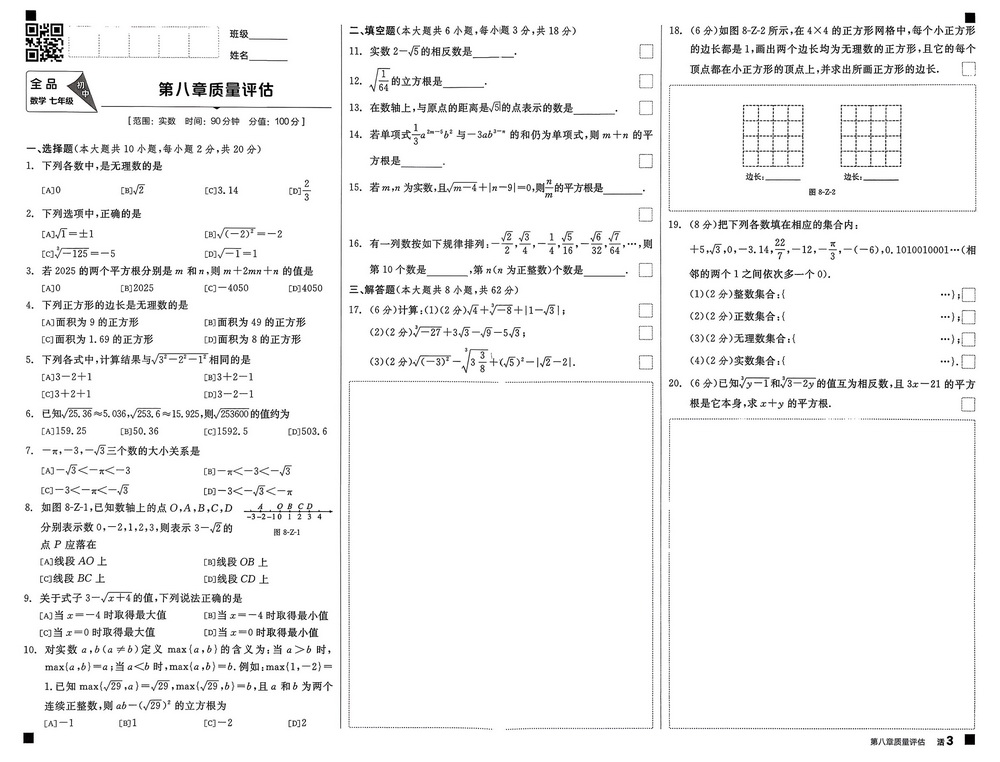 班级
姓名
全品
初中
数学 七年级
第八章质量评估
[范围：实数 时间：90分钟 分值：100分]
一、选择题(本大题共10小题,每小题2分,共20分)
1. 下列各数中,是无理数的是
[A]0 [B]√2 [C]3.14 [D]2/3
2. 下列选项中,正确的是
[A]√1=±1 [B]√(-2)²=-2
[C]∛-125=-5 [D]√-1=1
3. 若2025的两个平方根分别是m和n,则m+2mn+n的值是
[A]0 [B]2025 [C]-4050 [D]4050
4. 下列正方形的边长是无理数的是
[A]面积为9的正方形 [B]面积为49的正方形
[C]面积为1.69的正方形 [D]面积为8的正方形
5. 下列各式中,计算结果与√(3²-2²-1²)相同的是
[A]3-2+1 [B]3+2-1
[C]3+2+1 [D]3-2-1
6. 已知√25.36≈5.036,√253.6≈15.925,则√253600的值约为
[A]159.25 [B]50.36 [C]1592.5 [D]503.6
7. -π,-3,-√3三个数的大小关系是
[A]-√3<-π<-3 [B]-π<-3<-√3
[C]-3<-π<-√3 [D]-3<-√3<-π
8. 如图8-Z-1,已知数轴上的点O,A,B,C,D
分别表示数0,-2,1,2,3,则表示3-√2的
点P应落在
A O B C D
-3 -2 -1 0 1 2 3 4
图8-Z-1
[A]线段AO上 [B]线段OB上
[C]线段BC上 [D]线段CD上
9. 关于式子3-√(x+4)的值,下列说法正确的是
[A]当x=-4时取得最大值 [B]当x=-4时取得最小值
[C]当x=0时取得最大值 [D]当x=0时取得最小值
10. 对实数a,b(a≠b)定义max{a,b}的含义为:当a>b时,
max{a,b}=a;当a<b时,max{a,b}=b.例如:max{1,-2}=
1.已知max{√29,a}=√29,max{√29,b}=b,且a和b为两个
连续正整数,则ab-(√29)²的立方根为
[A]-1 [B]1 [C]-2 [D]2
二、填空题(本大题共6小题,每小题3分,共18分)
11. 实数2-√5的相反数是______.
12. √(1/64)的立方根是______.
13. 在数轴上,与原点的距离是√5的点表示的数是______.
14. 若单项式1/3a²ᵐ⁻⁵b²与-3ab³⁻ⁿ的和仍为单项式,则m+n的平
方根是______.
15. 若m,n为实数,且√(m-4)+|n-9|=0,则n/m的平方根是______.
16. 有一列数按如下规律排列:-√2/2,√3/4,-1/4,√5/16,-√6/32,√7/64,…,则
第10个数是______,第n(n为正整数)个数是______.
三、解答题(本大题共8小题,共62分)
17. (6分)计算:(1)(2分)√4+∛-8+|1-√3|;
(2)(2分)∛-27+3√3-√9-5√3;
(3)(2分)√(-3)²-∛(3 3/8)+(√5)²-|√2-2|.
18. (6分)如图8-Z-2所示,在4×4的正方形网格中,每个小正方形
的边长都是1,画出两个边长均为无理数的正方形,且它的每个
顶点都在小正方形的顶点上,并求出所画正方形的边长.
边长:______ 边长:______
图8-Z-2
19. (8分)把下列各数填在相应的集合内:
+5,√3,0,-3.14,22/7,-12,-π/3,-(-6),0.1010010001…(相
邻的两个1之间依次多一个0).
(1)(2分)整数集合:{ …};
(2)(2分)正数集合:{ …};
(3)(2分)无理数集合:{ …};
(4)(2分)实数集合:{ …}.
20. (6分)已知∛(y-1)和∛(3-2y)的值互为相反数,且3x-21的平方
根是它本身,求x+y的平方根.
第八章质量评估 活3